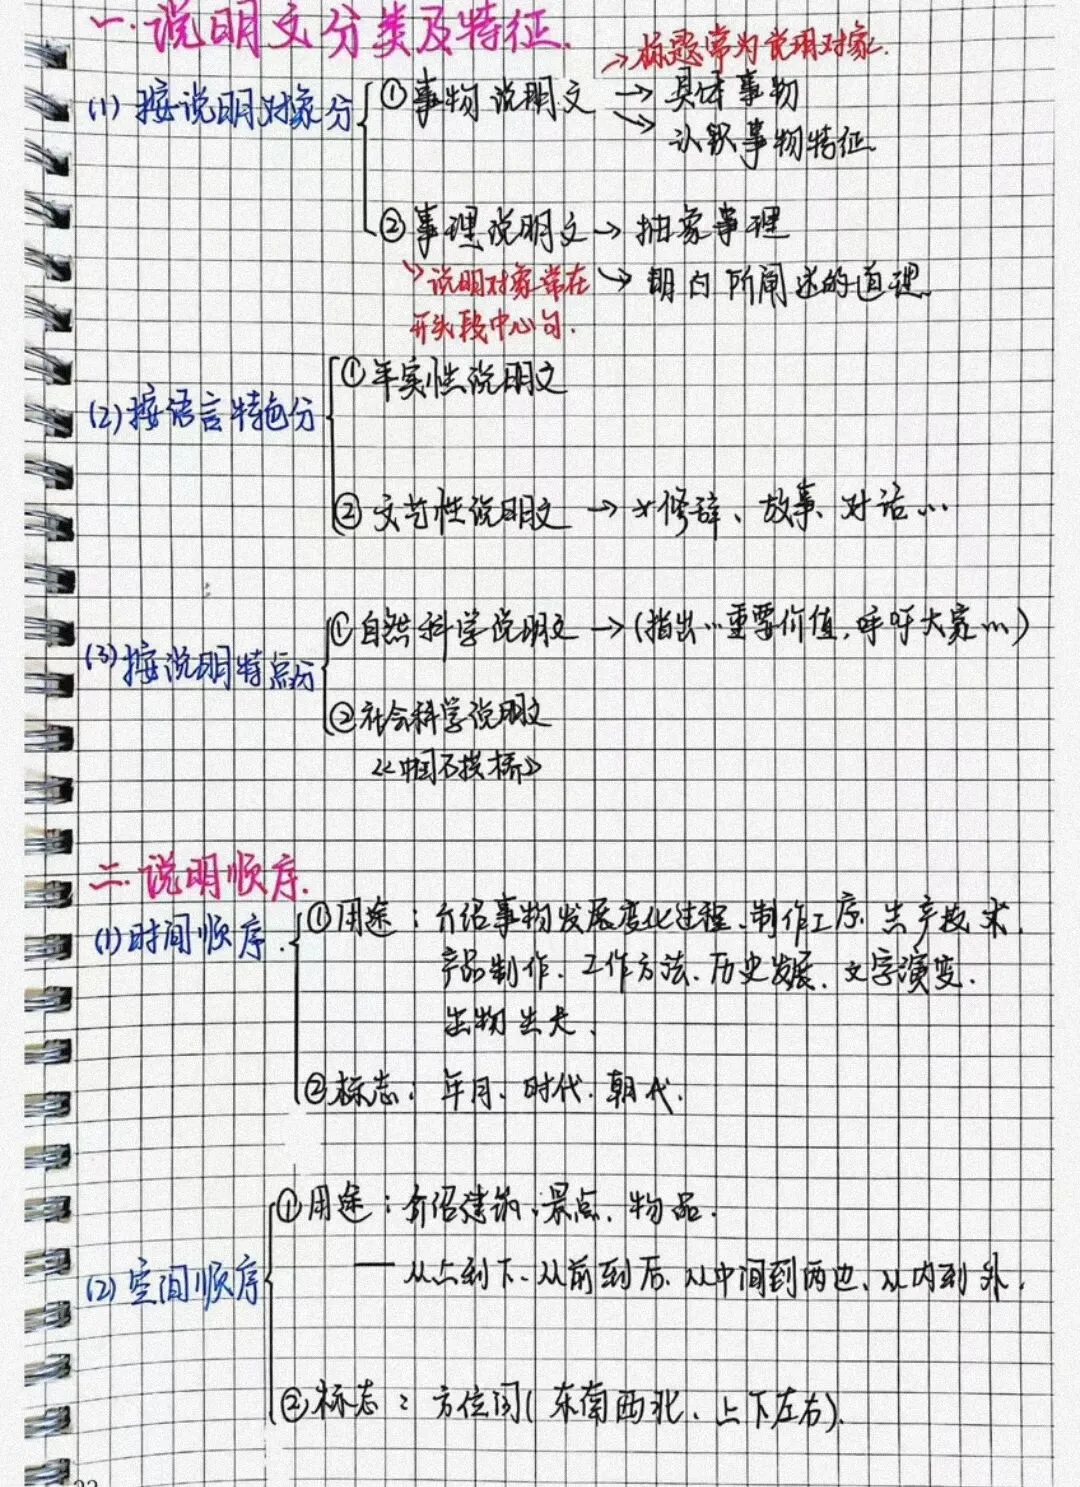 一.说明文分类及特征.
→标题常为说明对象.
(1) 按说明对象分
①事物说明文 → 具体事物
→ 认识事物特征
②事理说明文 → 抽象事理
→说明对象常在
开头段中心句.
→ 明白所阐述的道理.
(2)按语言特色分
①平实性说明文
②文艺性说明文 → 修辞、故事、对话...
(3)按说明特点分
①自然科学说明文 → (指出...重要价值,呼吁大家...)
②社会科学说明文
《中国石拱桥》
二.说明顺序.
(1)时间顺序.
①用途:介绍事物发展变化过程、制作工序.生产技术.
产品制作.工作方法、历史发展.文字演变.
生物生长、
②标志:年月、时代.朝代.
(2)空间顺序
①用途:介绍建筑、景点、物品.
— 从上到下、从前到后.从中间到两边、从内到外.
②标志:方位词(东南西北、上下左右).